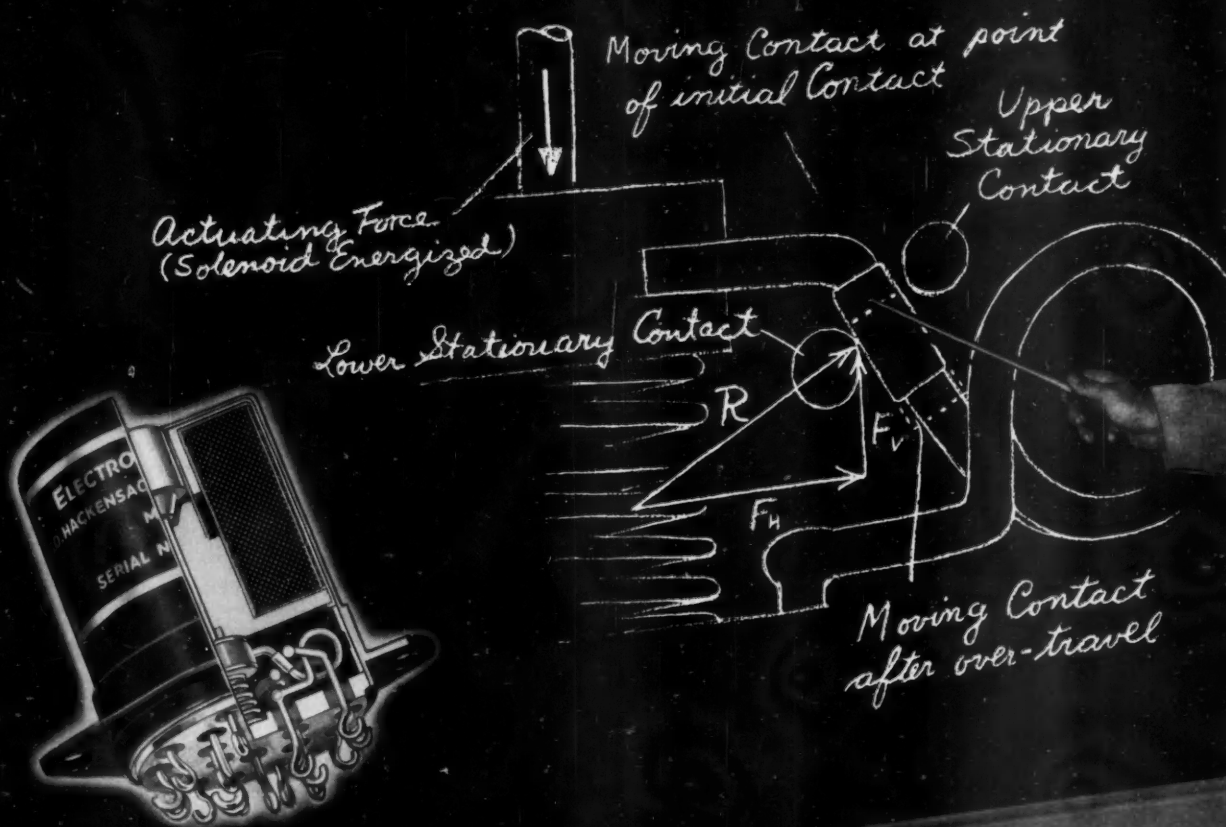 Moving Contact at point
of initial Contact
Upper
Stationary
Contact
Actuating Force
(Solenoid Energized)
Lower Stationary Contact
R
Fv
FH
Moving Contact
after over-travel
ELECTRO
HACKENSAC
SERIAL N